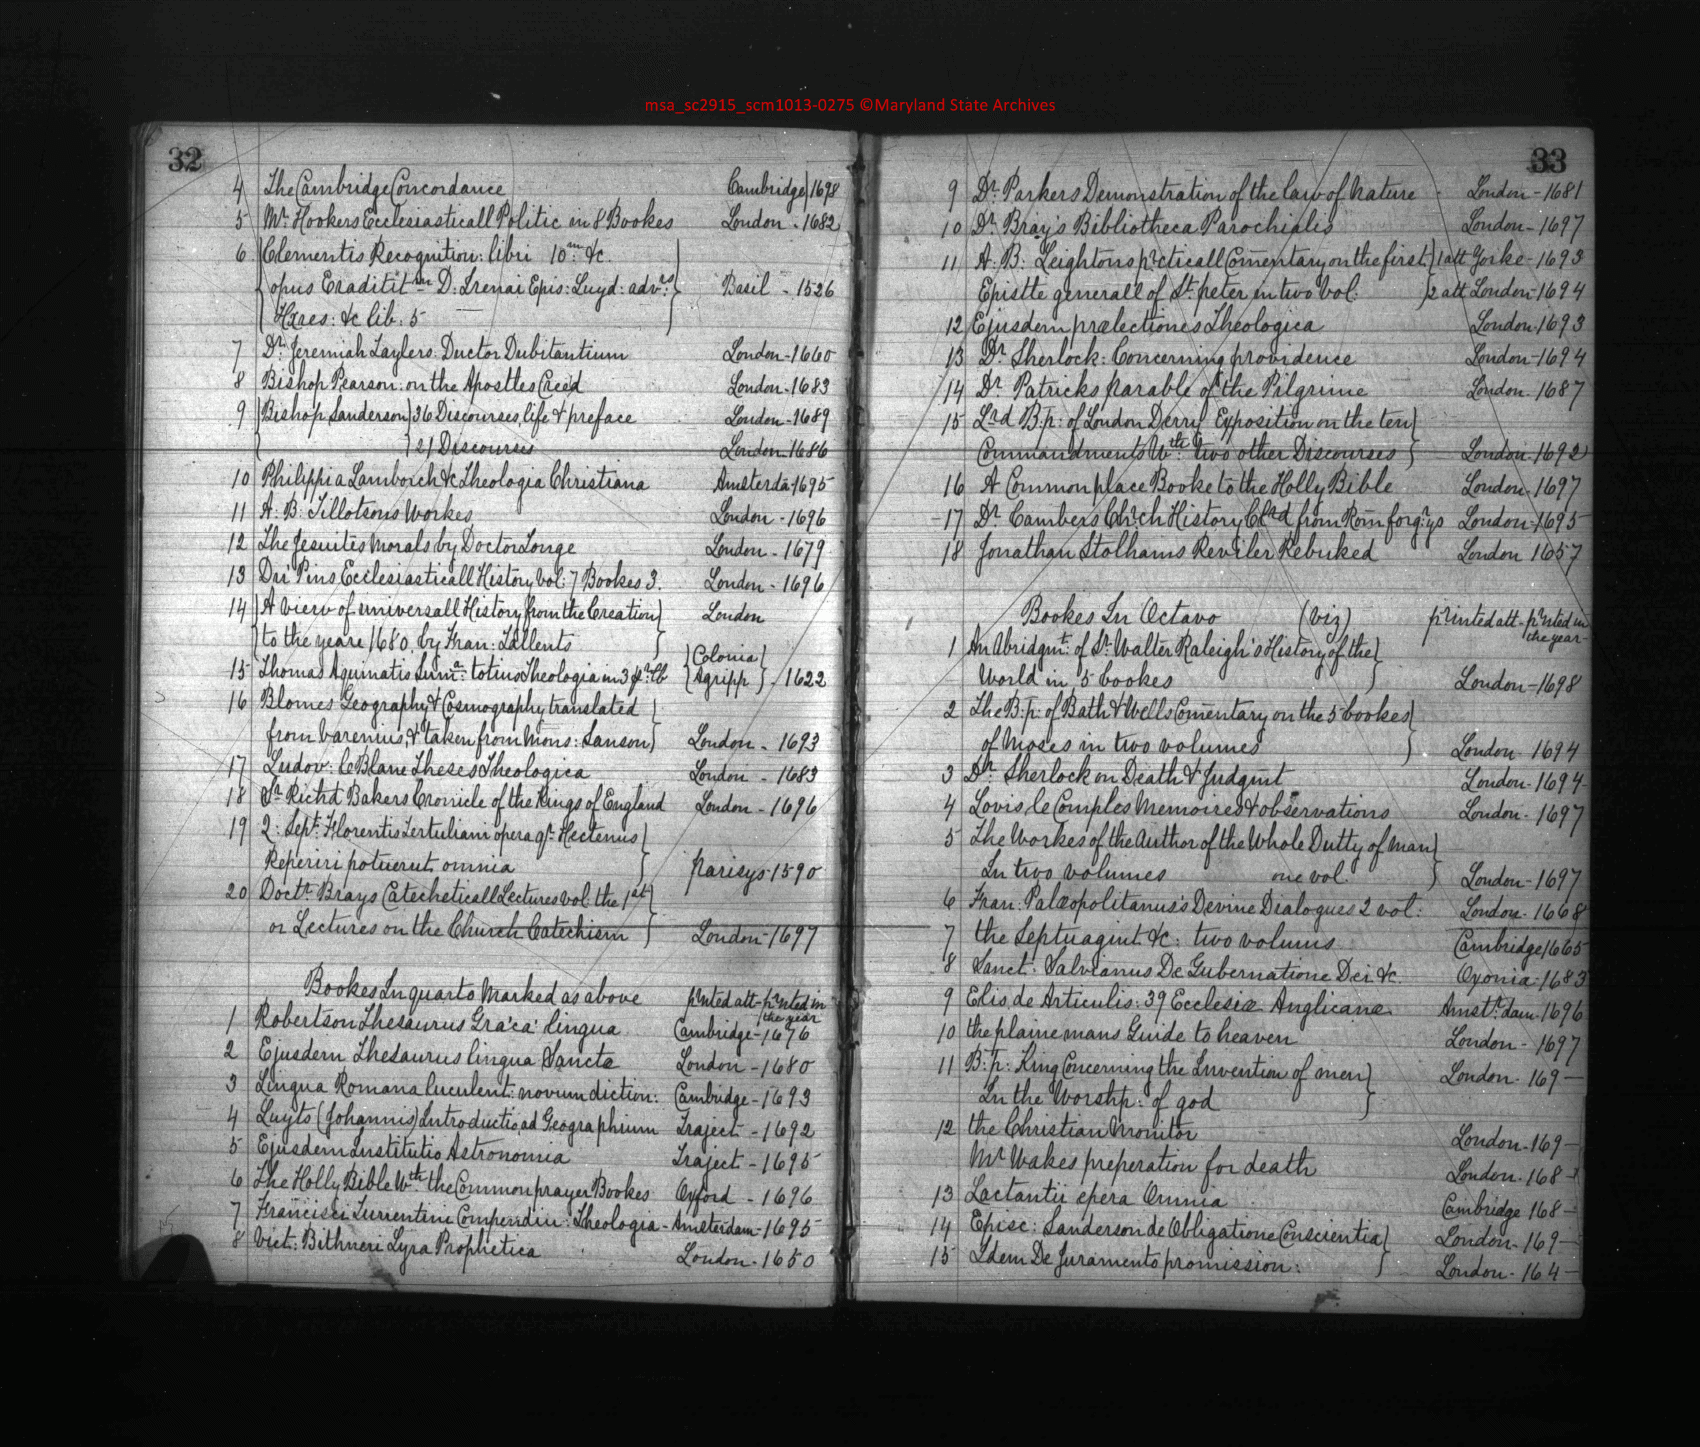 msa_sc2915_scm1013-0275 ©Maryland State Archives
32
4 The Cambridge Concordance Cambridge 1698
5 Mr. Hookers Ecclesiasticall Politic in 8 Bookes London - 1682
6 Clementis Recognition: libri 10m: &c.
opus Eraditit m D: Irenai Epis: Luyd: advrs Basil - 1526
Hæres: &c lib: 5
7 Dr. Jeremiah Taylers Ductor Dubitantium London - 1660
8 Bishop Pearson: on the Apostles Creed London - 1683
9 Bishop Sanderson 36 Discourses, life & preface London - 1689
21 Discourses London - 1686
10 Philippi a Lamborch &c Theologia Christiana Amsterda - 1695
11 A: B: Tillotsons Workes London - 1696
12 The Jesuites Morals by Doctor Tonge London - 1679
13 Du Pins Ecclesiasticall History vol: 7 Bookes 3. London - 1696
14 A view of universall History from the Creation London
to the yeare 1680. by Fran: Tallents
15 Thomas Aquinatis Suma totius Theologia in 3 pr: lb Colonia Agripp - 1622
16 Blomes Geography & Cosmography translated
from Varenius, & taken from Mons: Sanson London - 1693
17 Ludov: le Blanc Theses Theologica London - 1683
18 Sr Richd Bakers Cronicle of the Kings of England London - 1696
19 Q: Sept: Florentis Tertuliani opera qr Hectenus
Reperiri potuerut omnia parisys - 1590
20 Doctr. Brays Catecheticall Lectures vol: the 1st
or Lectures on the Church Catechism London - 1697
Bookes In quarto Marked as above prnted att - prnted in the year
1 Robertson Thesaurus Graca lingua Cambridge - 1676
2 Ejusdem Thesaurus lingua Sancta London - 1680
3 Lingua Romana luculent: novum diction: Cambridge - 1693
4 Luyts (Johannis) Introductio ad Geographium Traject - 1692
5 Ejusdem Institutio Astronomia Traject - 1695
6 The Holly Bible Wth the Common prayer Bookes Oxford - 1696
7 Francisci Turrentini Compendiu: Theologia - Amsterdam - 1695
8 Vict: Bithneri Lyra Prophetica London - 1650
33
9 Dr. Parkers Demonstration of the law of Nature - London - 1681
10 Dr. Bray's Bibliotheca Parochialis London - 1697
11 A: B: Leightons prcticall Comentary on the first 1 att Yorke - 1693
Epistle generall of St. peter in two Vol: 2 att London - 1694
12 Ejusdem prælectiones Theologica London - 1693
13 Dr. Sherlock: Concerning providence London - 1694
14 Dr. Patricks parable of the Pilgrime London - 1687
15 Lrd B:p: of London Derry Exposition on the ten
Commandments Wth: two other Discourses London - 1692
16 A Common place Booke to the Holly Bible London - 1697
17 Dr. Cambers Chrch History Clrd from Rom forgrys London - 1695
18 Jonathan Stolhams Reviler Rebuked London 1657
Bookes In Octavo (viz) printed att - prnted in the year -
1 An Abridgmt. of Sr. Walter Raleigh's History of the
World in 5 bookes London - 1698
2 The B:p: of Bath & Wells Comentary on the 5 bookes
of Moses in two volumes London 1694
3 Dr. Sherlock on Death & Judgmt London - 1694
4 Lovis le Comples Memoires & observations London - 1697
5 The Workes of the Author of the Whole Dutty of Man
In two volumes one vol London - 1697
6 Fran: Palæopolitanus's Devine Dialogues 2 vol: London - 1668
7 the Septuagint &c: two volums Cambridge 1665
8 Sanct: Salvianus De Gubernatione Dei &c. Oxonia - 1683
9 Elis de Articulis: 39 Ecclesiæ Anglicana Amstrdam - 1696
10 the plaine mans Guide to heaven London - 1697
11 B:p: King Concerning the Invention of men London - 169-
In the Worshp: of god
12 the Christian Monitor London - 169-
Mr Wakes preperation for death London - 168-
13 Lactantii opera Omnia Cambridge 168-
14 Episc: Sanderson de Obligatione Conscientia London - 169-
15 Idem De Juramento promission: London - 164-